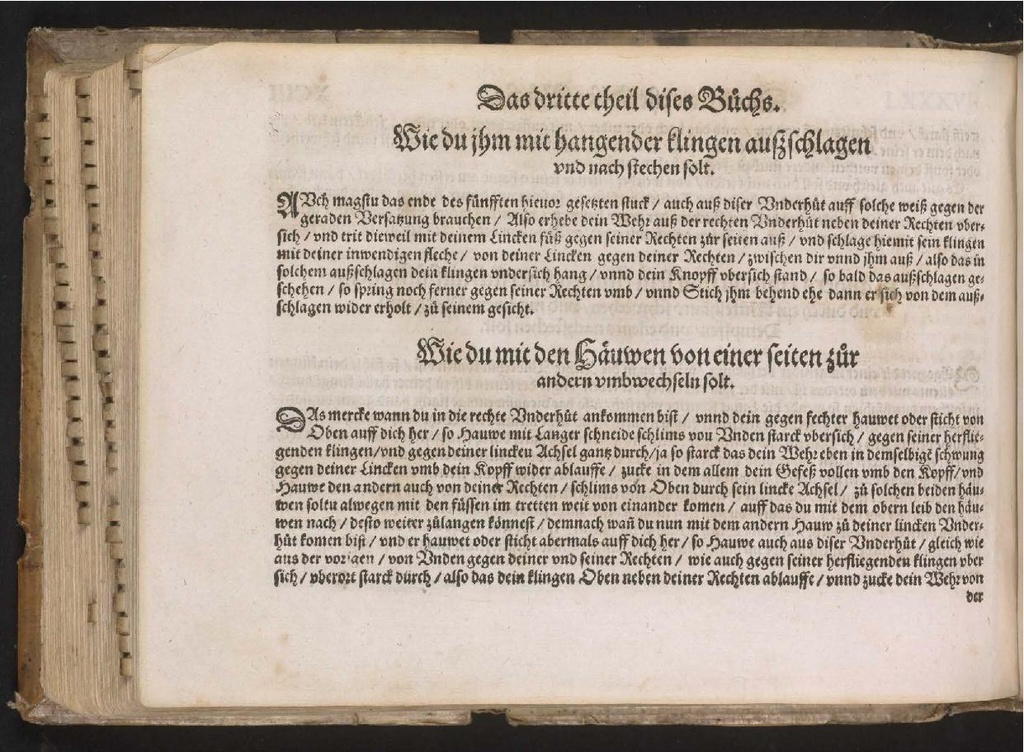 Das dritte theil dises Bůchs.
Wie du jhm mit hangender klingen außschlagen
vnd nach stechen solt.
AVch magstu das ende des fünfften hieuor gesetzten stuck / auch auß diser Vnderhůt auff solche weiß gegen der
geraden Versatzung brauchen / Also erhebe dein Wehr auß der rechten Vnderhůt neben deiner Rechten vber-
sich / vnd trit dieweil mit deinem Lincken fůß gegen seiner Rechten zůr seiten auß / vnd schlage hiemit sein klingen
mit deiner inwendigen fleche / von deiner Lincken gegen deiner Rechten / zwischen dir vnnd jhm auß / also das in
solchem außschlagen dein klingen vndersich hang / vnnd dein Knopff vbersich stand / so bald das außschlagen ge-
schehen / so spring noch ferner gegen seiner Rechten vmb / vnnd Stich jhm behend ehe dann er sich von dem auß-
schlagen wider erholt / zů seinem gesicht.
Wie du mit den Häuwen von einer seiten zůr
andern vmbwechseln solt.
DAs mercke wann du in die rechte Vnderhůt ankommen bist / vnnd dein gegen fechter hauwet oder sticht von
Oben auff dich her / so Hauwe mit Langer schneide schlims vou Vnden starck vbersich / gegen seiner herflie-
genden klingen / vnd gegen deiner linckeu Achsel gantz durch / ja so starck das dein Wehr eben in demselbigē schwung
gegen deiner Lincken vmb dein Kopff wider ablauffe / zucke in dem allem dein Gefeß vollen vmb den Kopff / vnd
Hauwe den andern auch von deiner Rechten / schlims von Oben durch sein lincke Achsel / zů solchen beiden häu-
wen soltu alwegen mit den füssen im tretten weit von einander komen / auff das du mit dem obern leib den häu-
wen nach / desto weiter zůlangen könnest / demnach wañ du nun mit dem andern Hauw zů deiner lincken Vnder-
hůt komen bist / vnd er hauwet oder sticht abermals auff dich her / so Hauwe auch aus diser Vnderhůt / gleich wie
aus der vorigen / von Vnden gegen deiner vnd seiner Rechten / wie auch gegen seiner herfliegendeu klingen vber
sich / vberort starck durch / also das dein klingen Oben neben deiner Rechten ablauffe / vnnd zucke dein Wehr von
der